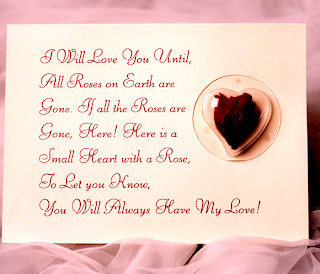 I Will Love You Until,
All Roses on Earth are
Gone. If all the Roses are
Gone, Here! Here is a
Small Heart with a Rose,
To Let you Know,
You Will Always Have My Love!